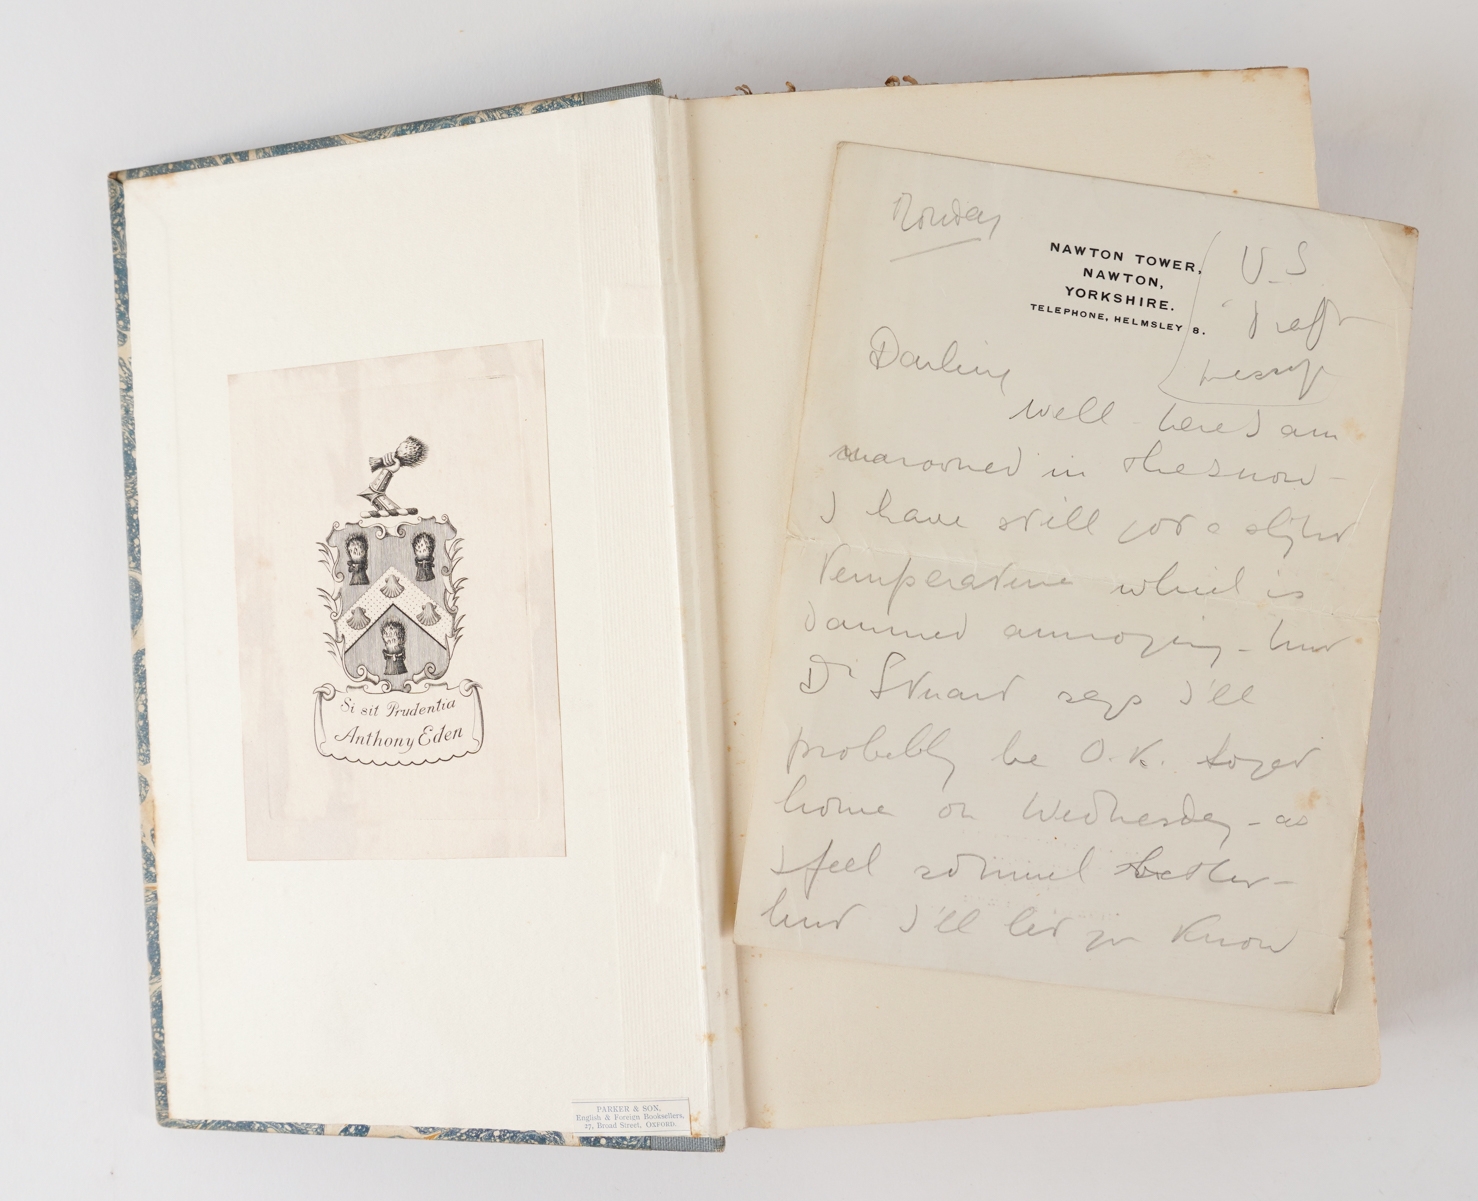 Si sit Prudentia
Anthony Eden
PARKER & SON,
English & Foreign Booksellers,
27, Broad Street, OXFORD.
Monday
NAWTON TOWER,
NAWTON,
YORKSHIRE.
TELEPHONE, HELMSLEY 8.
U.S
Darling
well here I am
marooned in the snow -
I have still got a slight
temperature which is
damned annoying - but
Dr Stuart says I'll
probably be O.K. to get
home on Wednesday - as
I feel so much better -
but I'll let you know